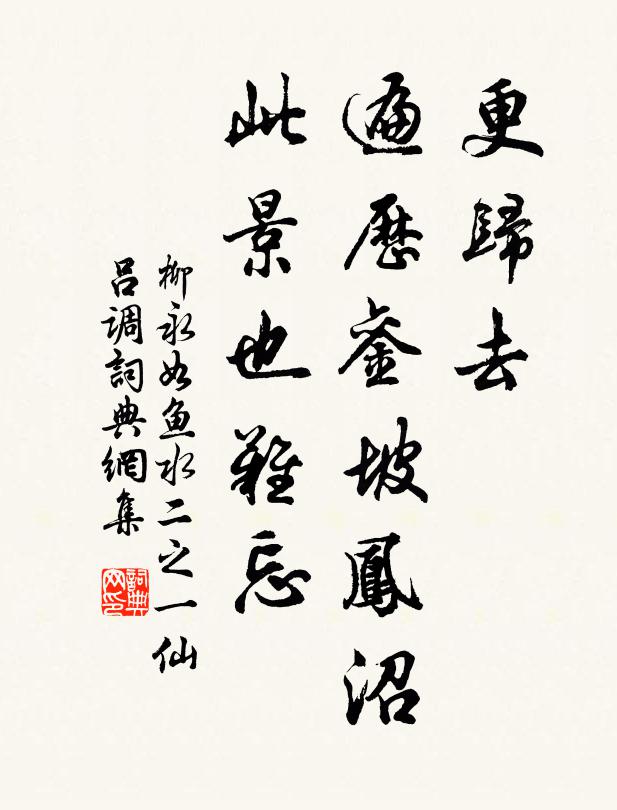 更歸去
遍歷銮坡鳳沼
此景也難忘
柳永如鱼水二之一仙
吕調詞典網集
詞典
网印